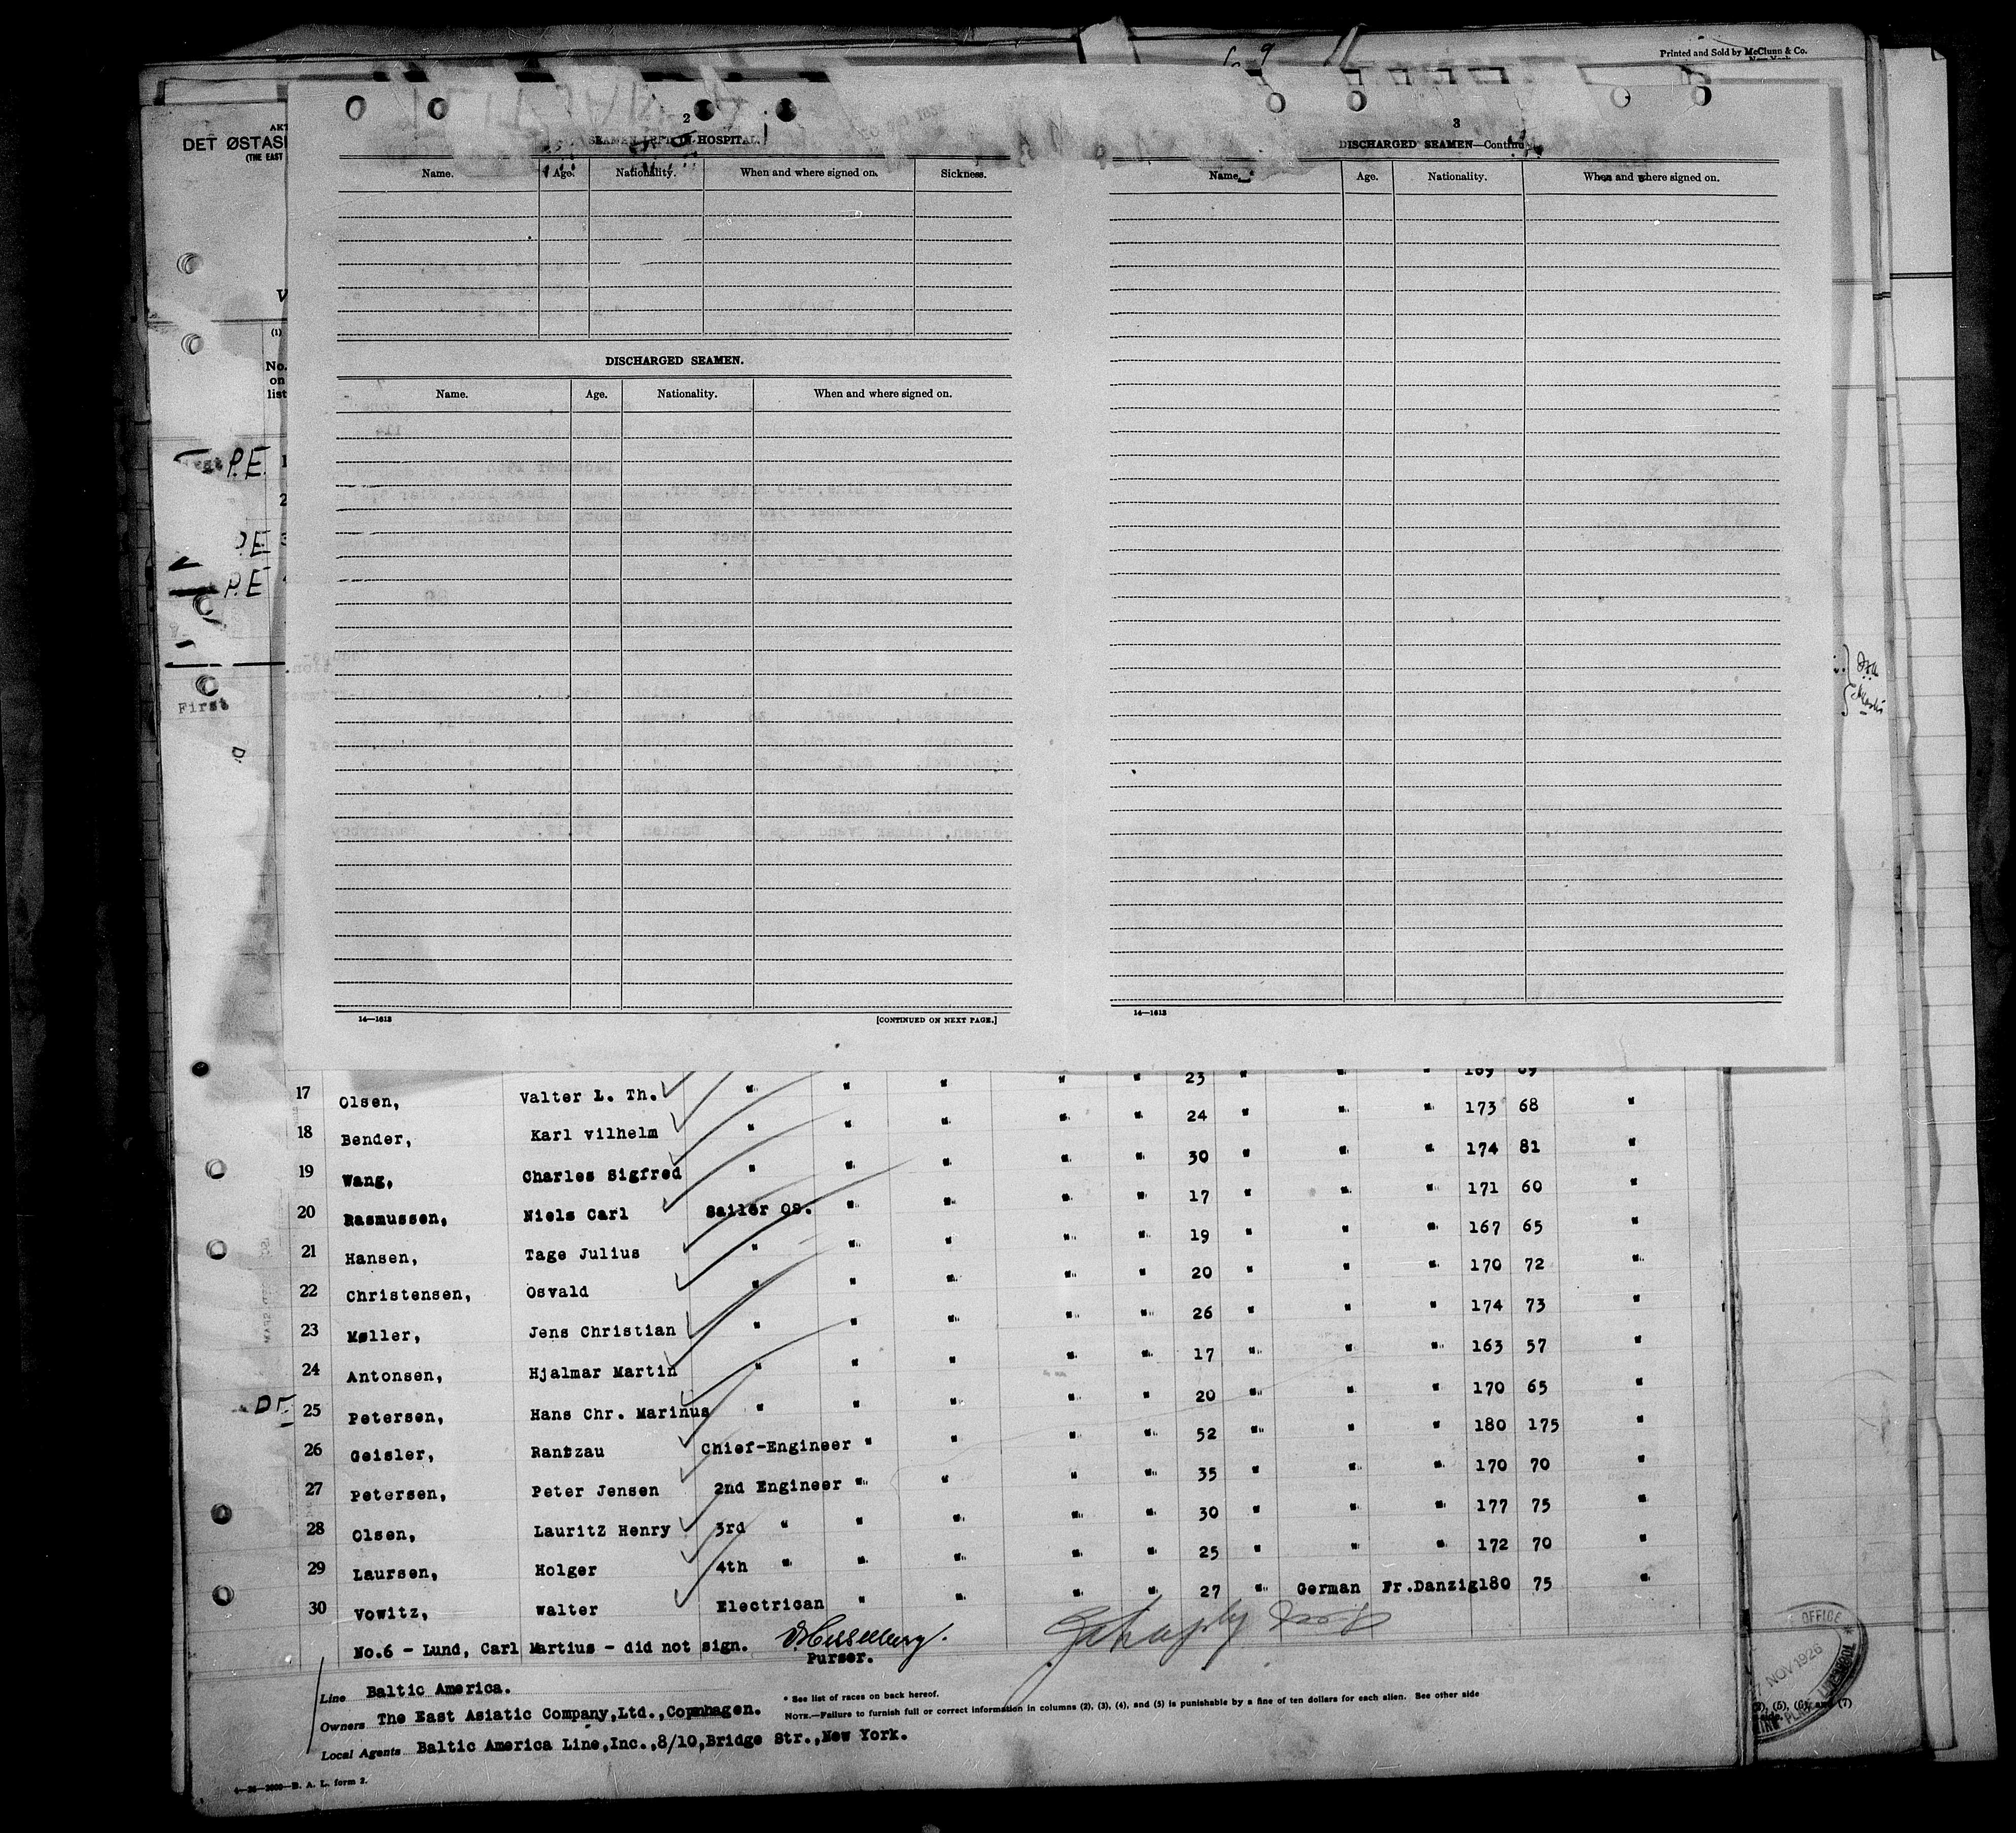 Printed and Sold by McClunn & Co.
New York
DET ØSTASI
(THE EAST
2
SEAMEN LEFT IN HOSPITAL.
Name. Age. Nationality. When and where signed on. Sickness.
DISCHARGED SEAMEN.
Name. Age. Nationality. When and where signed on.
14—1613 [CONTINUED ON NEXT PAGE.]
3
DISCHARGED SEAMEN—Continu
Name. Age. Nationality. When and where signed on.
14—1613
(1)
No.
on
list
P.E.
P.E
P.E
First
17 Olsen, Valter L. Th. " " " " " 23 " " " 169 69
18 Bender, Karl vilhelm " " " " " 24 " " " 173 68 "
19 Wang, Charles Sigfred " " " " " 30 " " " 174 81 "
20 Rasmussen, Niels Carl Sailor OS. " " " " 17 " " " 171 60 "
21 Hansen, Tage Julius " " " " " 19 " " " 167 65 "
22 Christensen, Osvald " " " " " 20 " " " 170 72 "
23 Møller, Jens Christian " " " " " 26 " " " 174 73 "
24 Antonsen, Hjalmar Martin " " " " " 17 " " " 163 57 "
25 Petersen, Hans Chr. Marinus " " " " " 20 " " " 170 65 "
26 Geisler, Rantzau Chief-Engineer " " " " 52 " " " 180 175 "
27 Petersen, Peter Jensen 2nd Engineer " " " " 35 " " " 170 70 "
28 Olsen, Lauritz Henry 3rd " " " " " 30 " " " 177 75 "
29 Laursen, Holger 4th " " " " " 25 " " " 172 70 "
30 Vowitz, walter Electrican " " " " 27 " German Fr.Danzig180 75 "
No.6 - Lund, Carl Martius - did not sign.
Purser.
Line Baltic America.
Owners The East Asiatic Company,Ltd.,Copnhagen.
Local Agents Baltic America Line,Inc.,8/10,Bridge Str.,New York.
* See list of races on back hereof.
NOTE.—Failure to furnish full or correct information in columns (2), (3), (4), and (5) is punishable by a fine of ten dollars for each alien. See other side
4—26—2000—B. A. L. form 2.
OFFICE
7 NOV 1926
(5), (6), and (7)